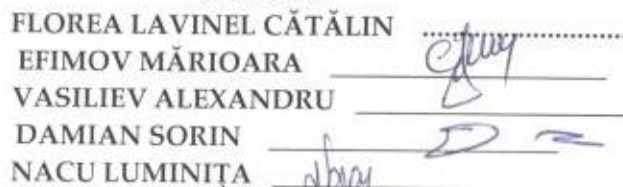 FLOREA LAVINEL CĂTĂLIN ..............................
EFIMOV MĂRIOARA ____________________
VASILIEV ALEXANDRU ____________________
DAMIAN SORIN ____________________
NACU LUMINIȚA ____________________